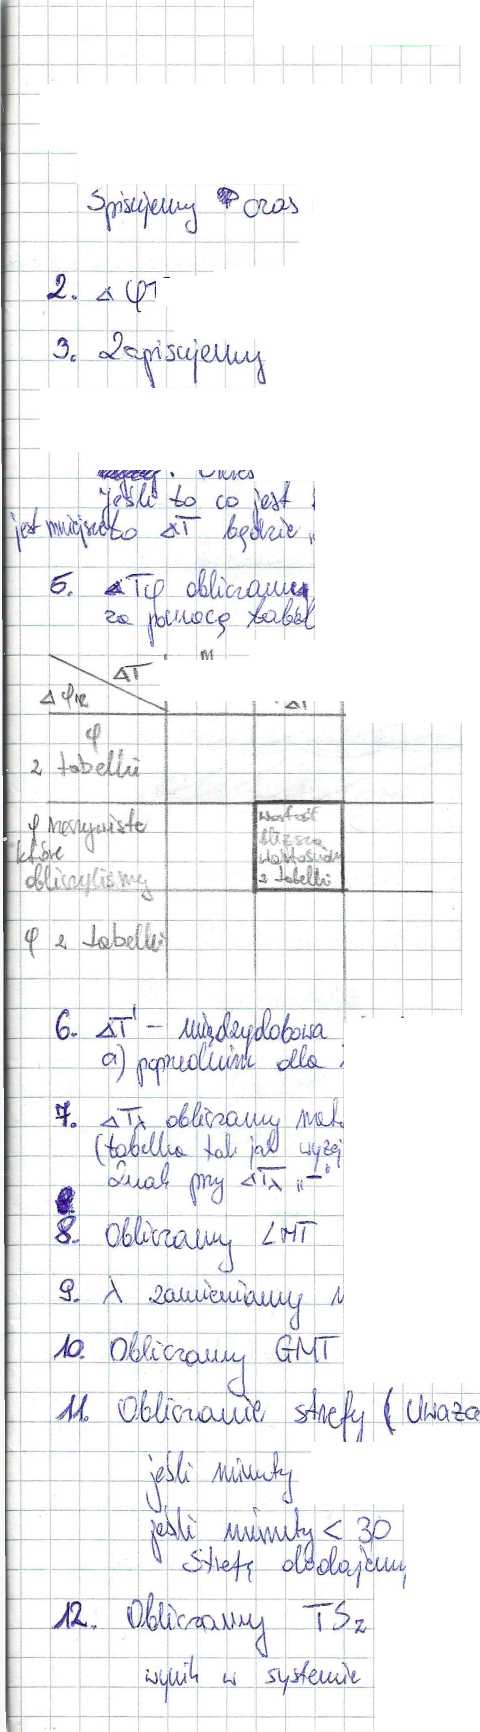 Spisujemy oraz
2. Δ φT
3. Zapisujemy
jeśli to co jest
jest mniejsze to ΔT będzie "
5. ΔTφ obliczamy
za pomocą tabel
ΔT
Δ φR
ΔT
φ
z tabelki
φ rzeczywiste
które
obliczyliśmy
wartość
bliższa
wartościom
z tabelki
φ z tabelki
6. ΔT' - międzydobowa
a) poprzednim dla
7. ΔTλ obliczamy
(tabelka tak jak wyżej
Znak przy ΔTλ „-"
8. Obliczamy LMT
9. λ zamieniamy
10. Obliczamy GMT
11. Obliczanie strefy ( Uważa
jeśli minuty
jeśli minuty < 30
Strefę dodajemy
12. Obliczamy TSz
wynik w systemie